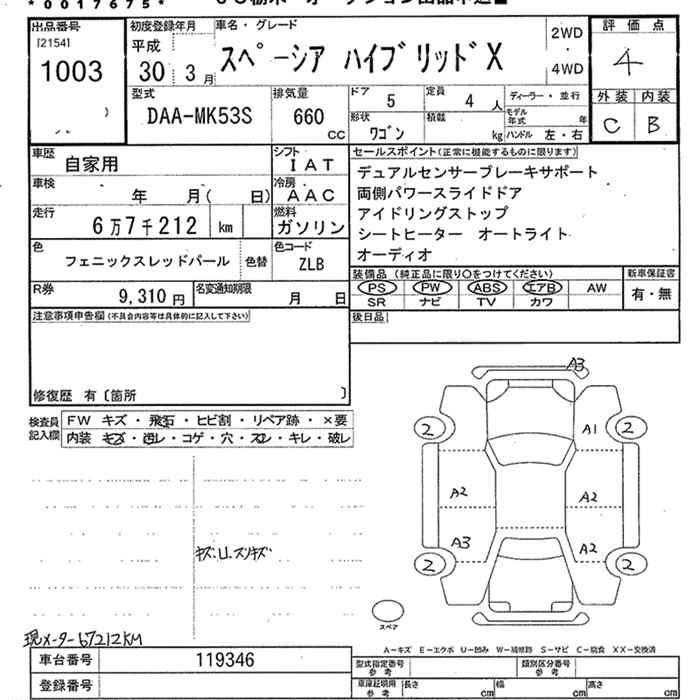 *0017675*
出品番号
[2154]
1003
初度登録年月
平成
30 3月
車名・グレード
スペーシア ハイブリッドX
2WD
・
4WD
評価点
4
外装 内装
C B
型式
DAA-MK53S
排気量
660
cc
ドア 5
定員 4 人
形状 ワゴン
積載 kg
ディーラー・並行
モデル年式 年
ハンドル 左・右
車歴 自家用
シフト IAT
車検 年 月( 日)
冷房 AAC
走行 6万7千212 km
燃料 ガソリン
色 フェニックスレッドパール
色替
色コード ZLB
R券 9,310円
名変通知期限 月 日
セールスポイント(正常に機能するものに限ります)
デュアルセンサーブレーキサポート
両側パワースライドドア
アイドリングストップ
シートヒーター オートライト
オーディオ
装備品(純正品に限り○をつけてください)
PS PW ABS エアB AW
SR ナビ TV カワ
新車保証書
有・無
後日品
注意事項申告欄(不具合内容等は具体的に記入して下さい)
修復歴 有〔箇所 〕
検査員記入欄
FW キズ・飛石・ヒビ割・リペア跡・×要
内装 キズ・汚レ・コゲ・穴・スレ・キレ・破レ
キズ.U.スリキズ
A3
2 A1 2
A2 A2
A3 A2
2 2
スペア
現メーター67212KM
A-キズ E-エクボ U-凹み W-補修跡 S-サビ C-腐食 XX-交換済
車台番号 119346
登録番号
型式指定番号 参考
類別区分番号 参考
車庫証明用 参考
長さ cm 幅 cm 高さ cm